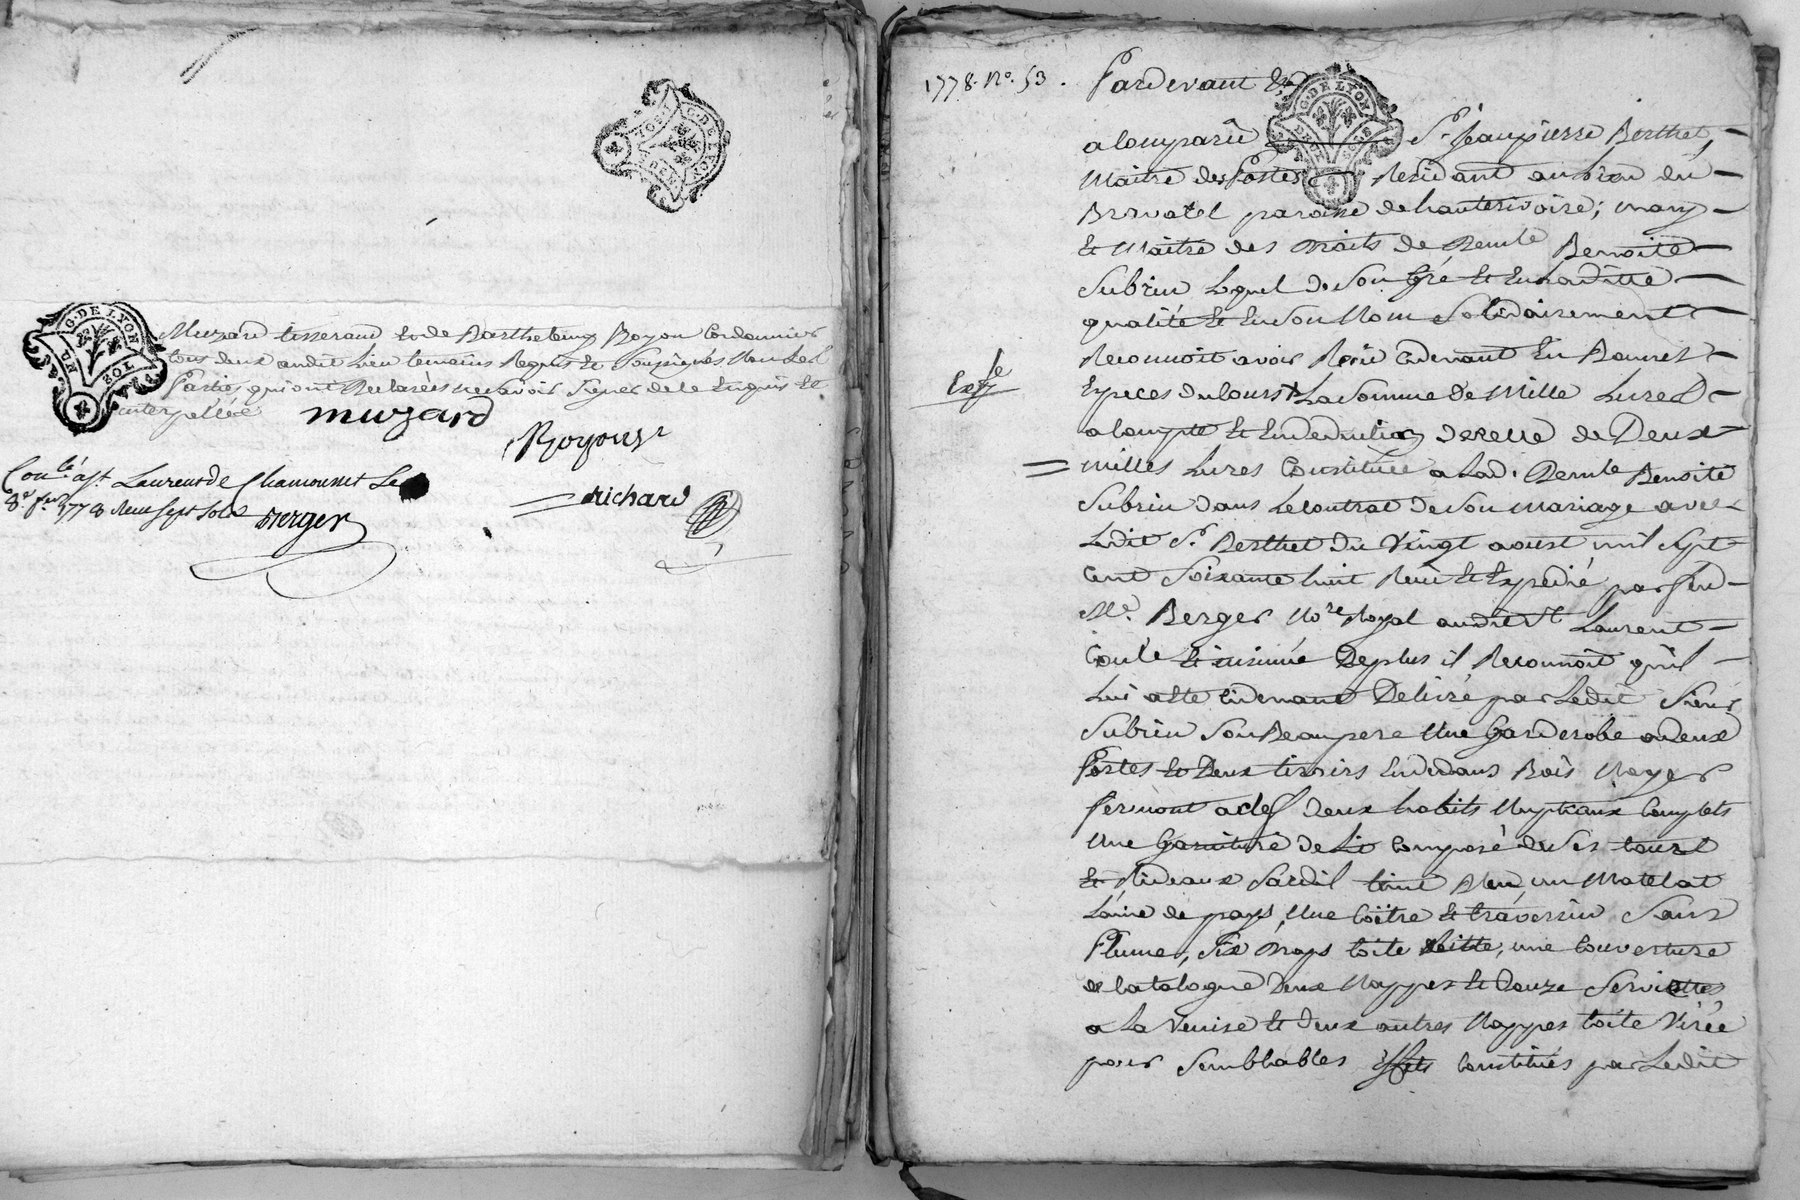 G. DE LYON
G. DE LYON
UN SOL
Muzard tisserand et de Barthelemy Royon Cordonnier
tous deux audit Lieu temoins Requis et Soussignés Non Les
Parties qui ont Declarées ne savoir Signer de ce Enquis et
interpellée
muzard
Royon
richard
Con.lé à St. Laurent de Chamousset Le
8e. 1778 Reçu sept sols
Berger
1778. No. 53.
Pardevant
G. DE LYON
a Comparû Sr. Jean pierre Berthet,
Maitre des Postes Residant au Lieu du
paroisse de hauterivoire; mary
et Maitre des Droits de Demlle Benoite
Subrin Lequel de Son Gré et en Laditte
qualité et en Son Nom Solidairement
Reconnoit avoir Reçu Cidevant En Bonnes
Expé
Especes du Cours La Somme de Mille Livres
a Compte et en deduction de celle de Deux
milles Livres Constituée a Lad. Demlle Benoite
Subrin dans Le Contrat de Son Mariage avec
Ledit Sr. Berthet du Vingt aoust mil Sept
Cent Soixante huit Reçu et Expedié par feu
Me. Berger Nore Royal audit St Laurent
Conlé et insinué Deplus il Reconnoit qu'il
Lui a eté Cidevant Delivré par Ledit Sieur
Subrin Son Beaupere Une Garderobe a deux
Portes et Deux tiroirs En dedans Bois Noyer
fermont a clef deux habits Nuptiaux Complets
Une Garniture de Lit Composé de Ses tours
et Rideaux Sardil teint Bleu, un Matelat
Laine de pays, Une Coitre et traversin Sans
Plume, Six Draps toile, une Couverture
de Catalogne Deux Nappes et Douze Serviettes
a La Venise et Deux autres Nappes toile Virée
pour Semblables Effets Constitués par Ledit